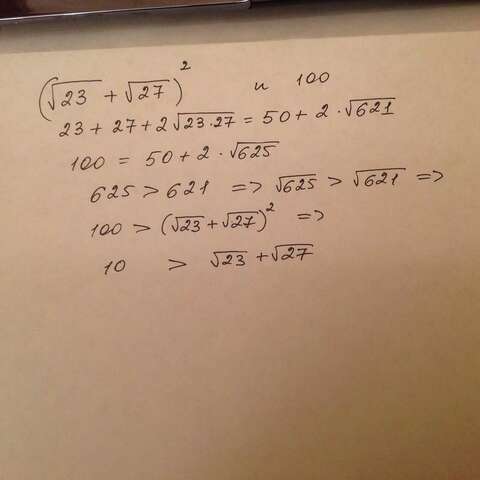 (√23 + √27)² и 100
23 + 27 + 2√23·27 = 50 + 2·√621
100 = 50 + 2·√625
625 > 621 => √625 > √621 =>
100 > (√23 + √27)² =>
10 > √23 + √27